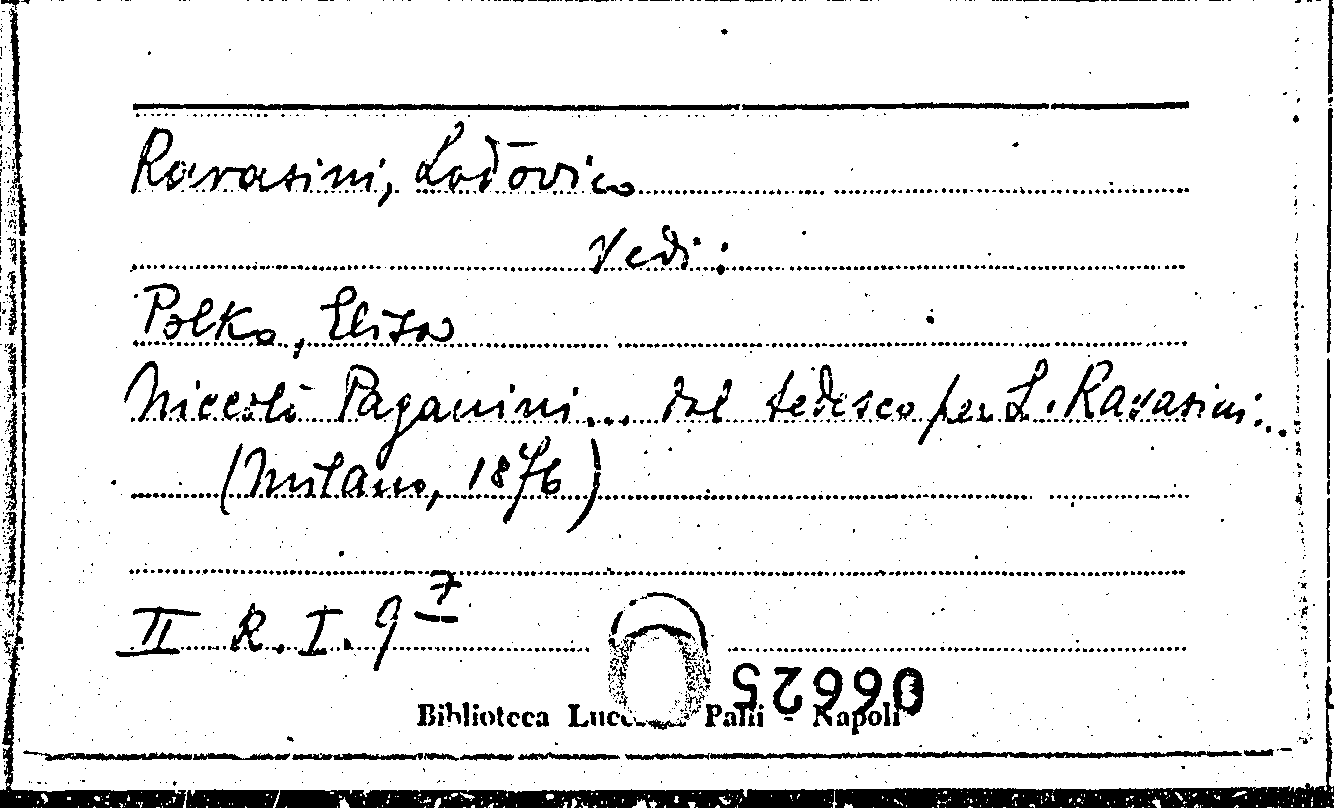 Ravasini, Lodovico
Vedi:
Polko, Elisa
Niccolò Paganini... dal tedesco per L. Ravasini...
(Milano, 1876)
II R. I. 9 7
06625
Biblioteca Palli - Napoli